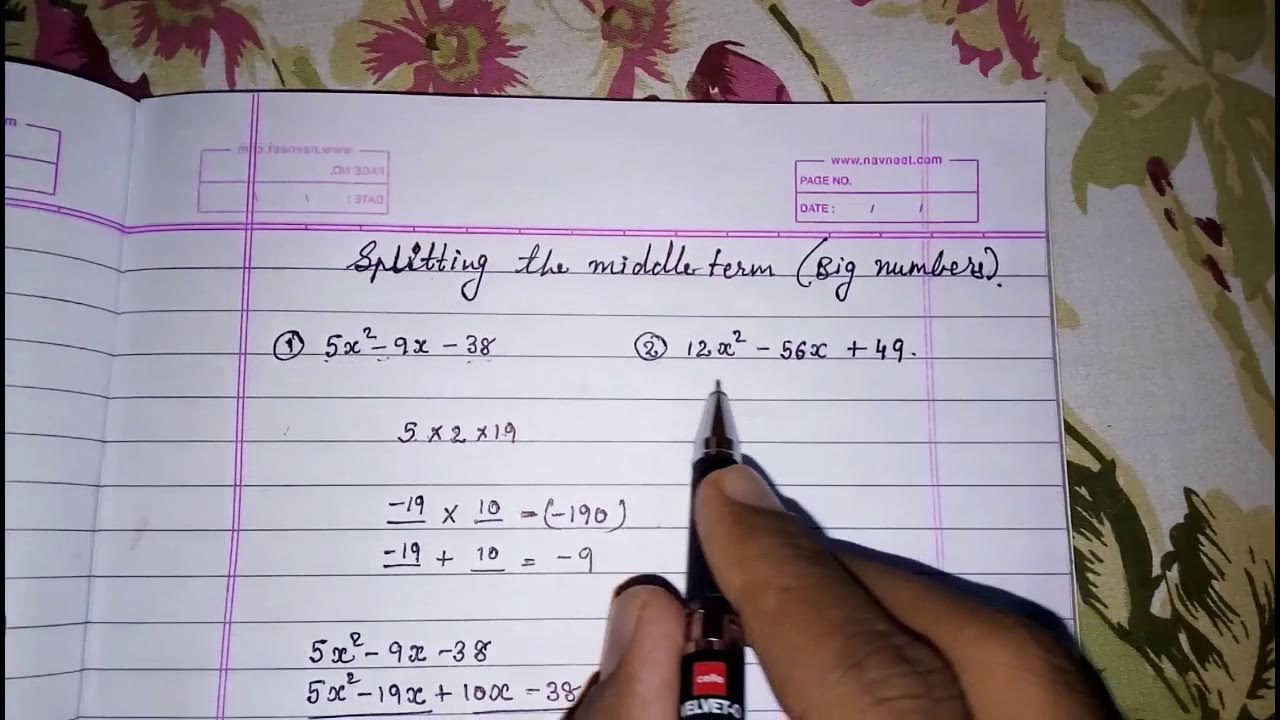 www.navneet.com
PAGE NO.
DATE : / /
www.navneet.com
PAGE NO.
DATE : / /
Splitting the middle term (Big numbers).
① 5x² - 9x - 38
② 12x² - 56x + 49.
5 × 2 × 19
-19 × 10 = (-190)
-19 + 10 = -9
5x² - 9x - 38
5x² - 19x + 10x - 38
cello
VELVET-O